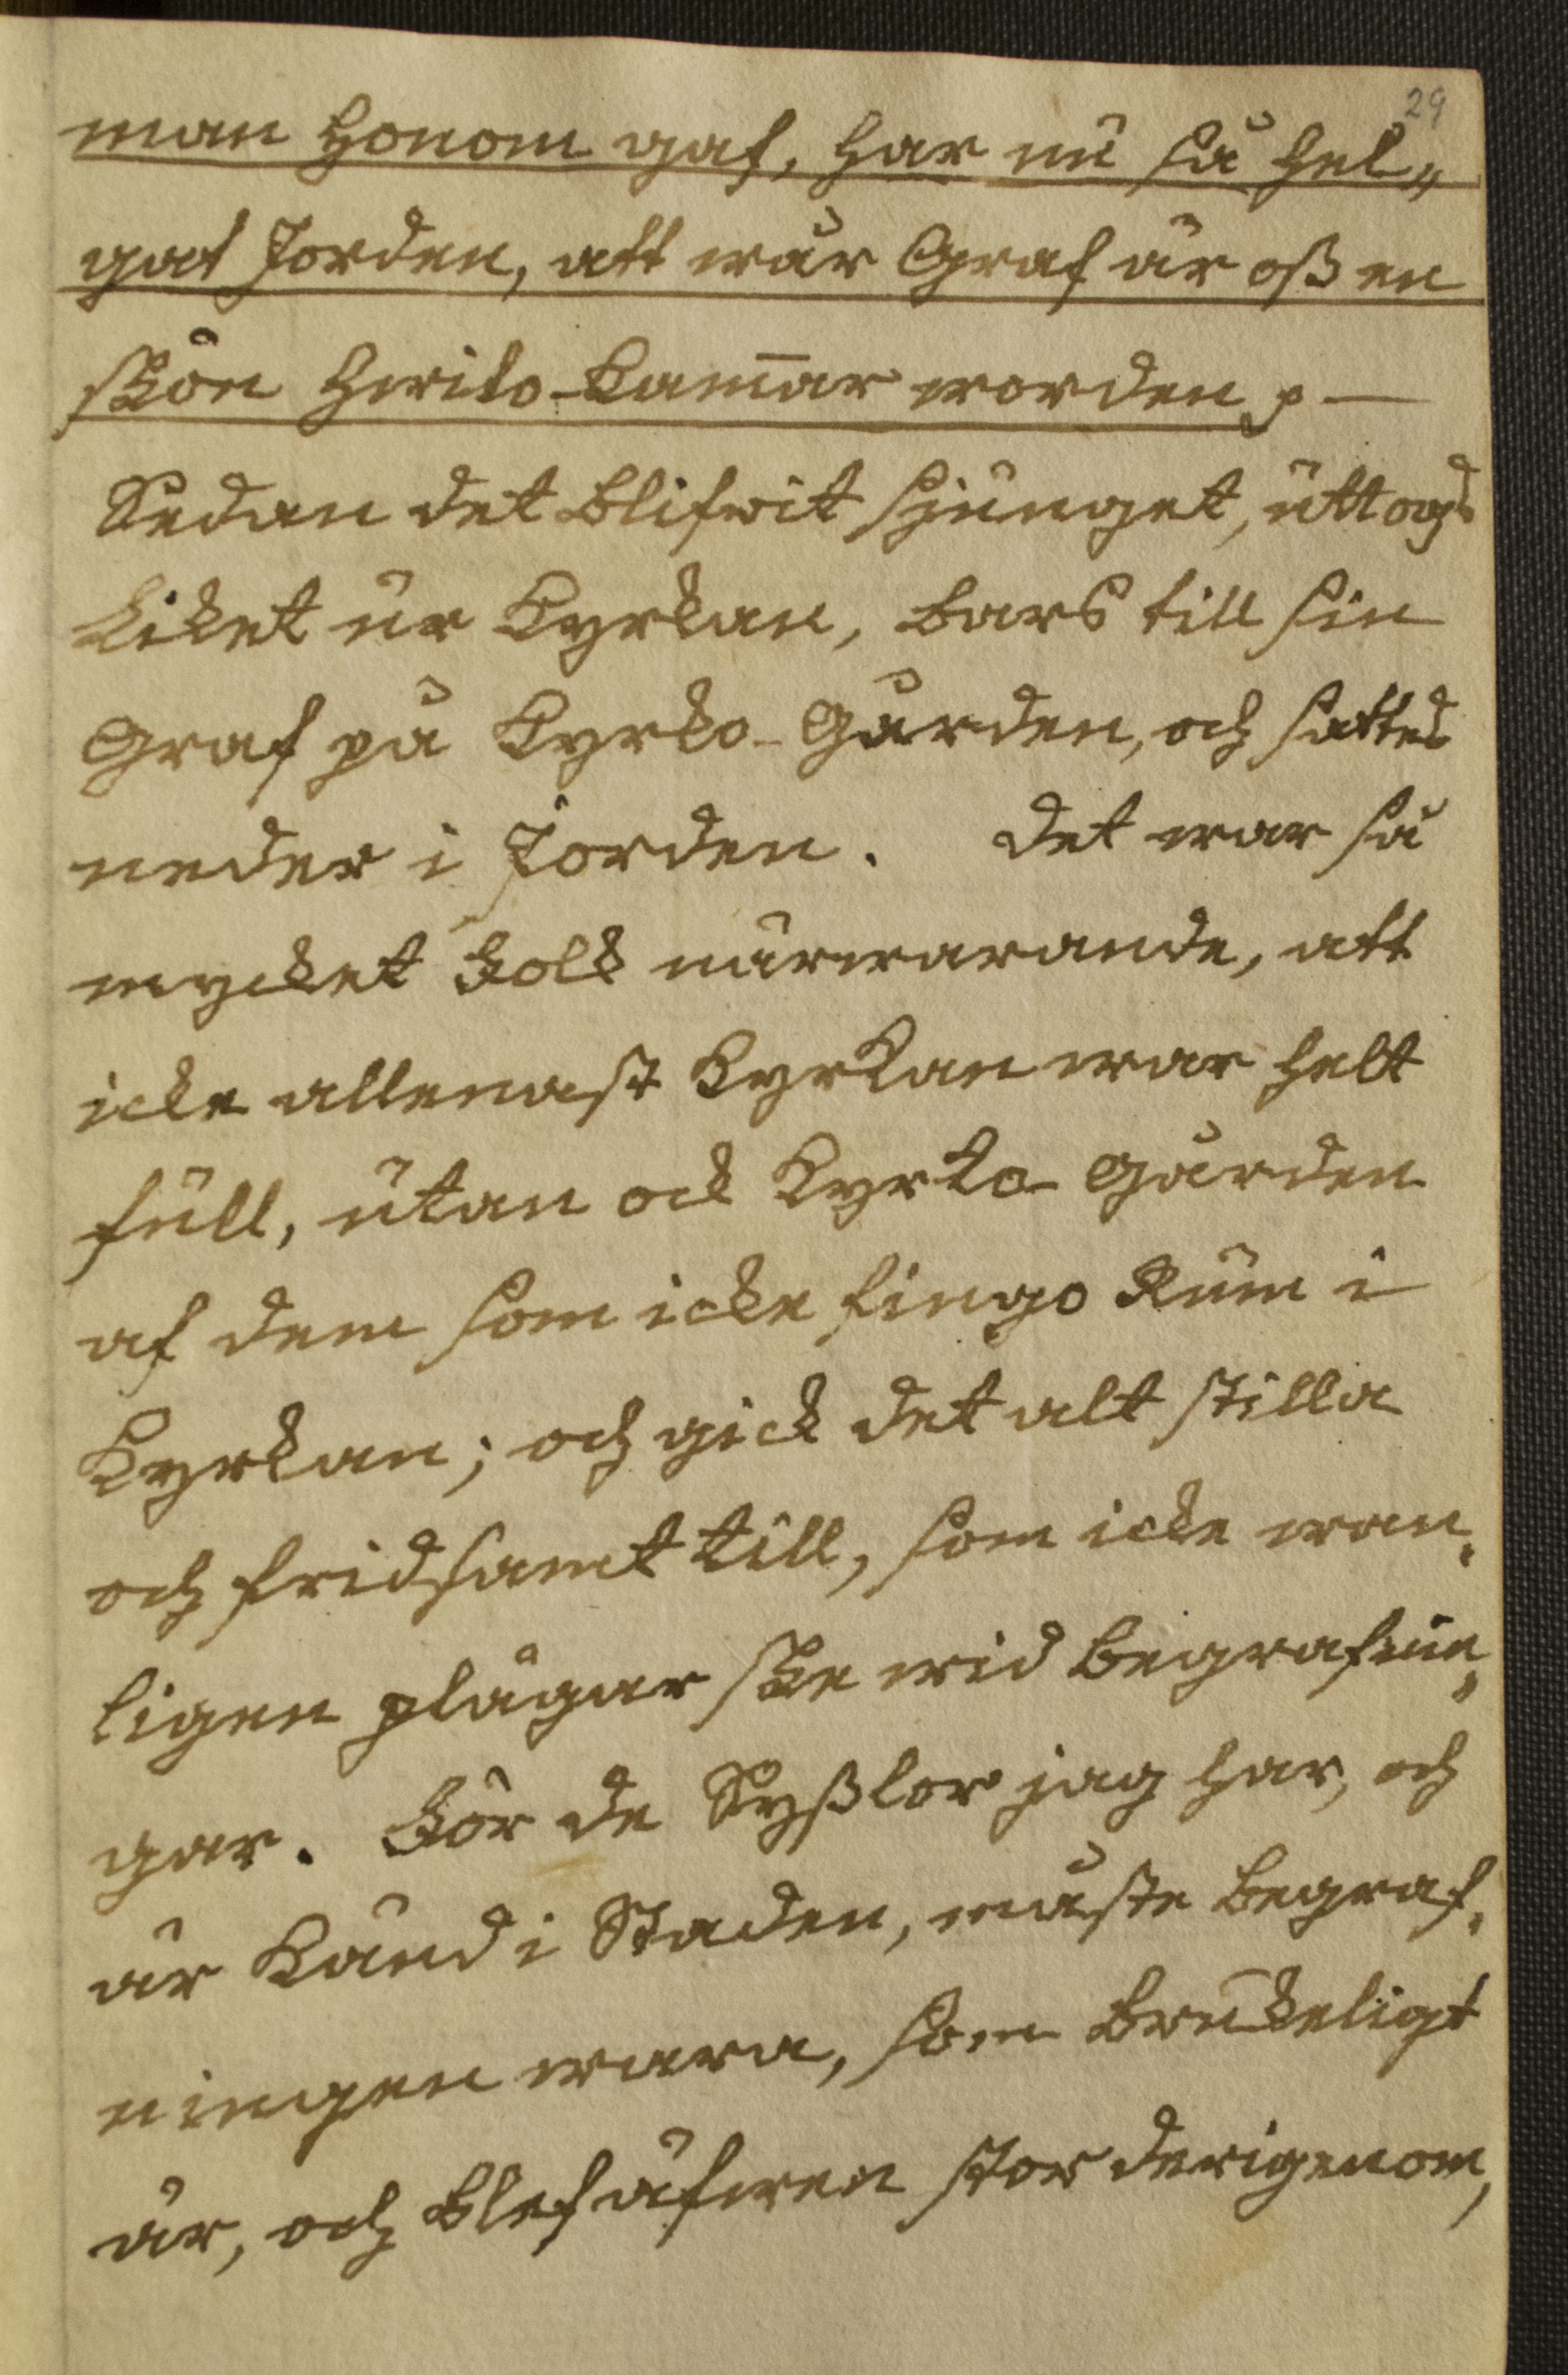 29
man honom gaf, har nu så hel„
gat Jorden, att wår Graf är oß en
skön hwilo-Kam̄ar worden p —
Sedan det blifwit sjunget, uttogs
Liket ur Kyrkan, bars till sin
Graf på Kyrko-Gården, och sattes
neder i Jorden. Det war så
mycket Folk närwarande, att
icke allenast Kyrkan war helt
full, utan ock Kyrko-Gården
af dem som icke fingo Rum i
Kyrkan; och gick det alt stilla
och fridsamt till, som icke wan„
ligen plägar ske wid begrafnin„
gar. För de Syßlor jag har, och
är Känd i Staden, måste begraf„
ningen wara, som brukeligt
är, och blef äfwen stor derigenom,